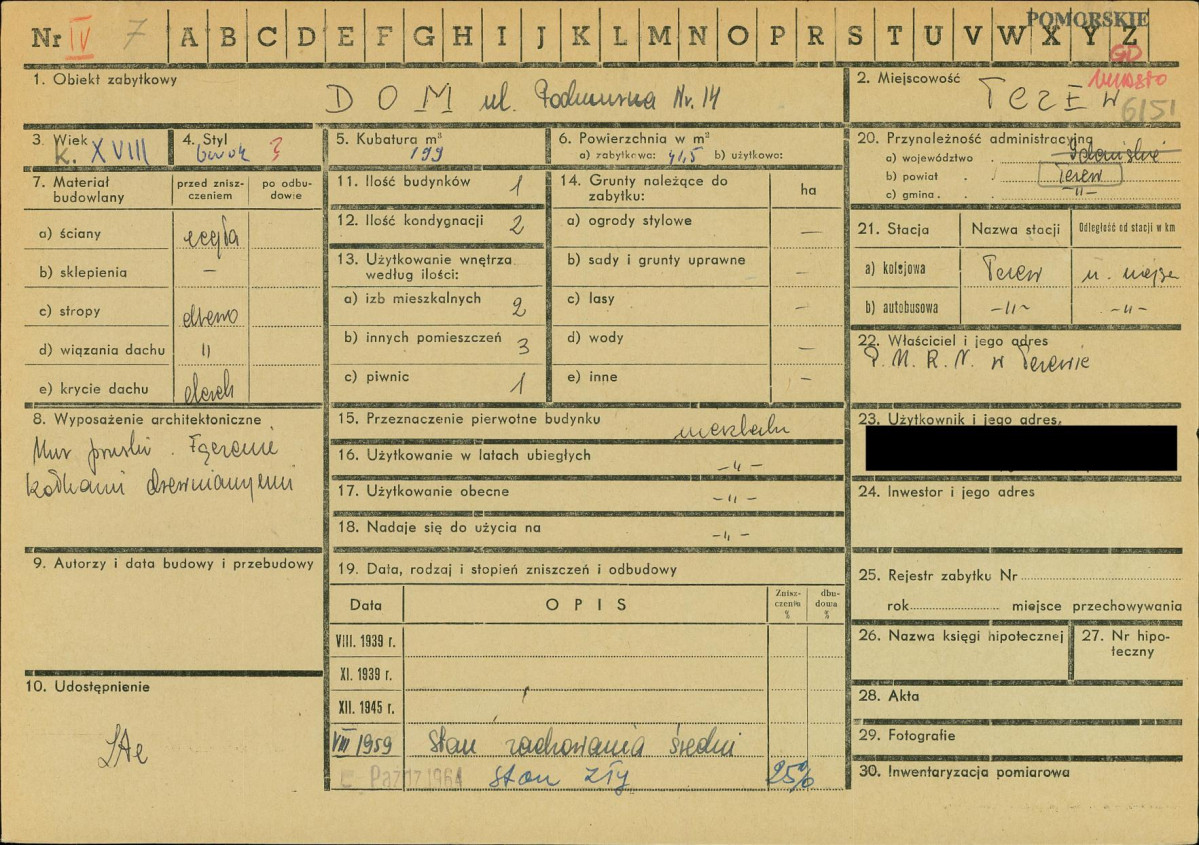 POMORSKIE
Nr IV 7 A B C D E F G H I J K L M N O P R S T U V W X Y Z
GD
miasto
1. Obiekt zabytkowy
DOM ul. Nr. 14
2. Miejscowość
TCZEW
6151
3. Wiek
k. XVIII
4. Styl
barok ?
5. Kubatura m³
199
6. Powierzchnia w m²
a) zabytkowa: 41,5 b) użytkowa:
20. Przynależność administracyjna
a) województwo . Gdańskie
b) powiat . . Tczew
c) gmina . . -"-
7. Materiał budowlany
przed zniszczeniem
po odbudowie
a) ściany cegła
b) sklepienia —
c) stropy drewno
d) wiązania dachu "
e) krycie dachu
11. Ilość budynków 1
12. Ilość kondygnacji 2
13. Użytkowanie wnętrza
według ilości:
a) izb mieszkalnych 2
b) innych pomieszczeń 3
c) piwnic 1
14. Grunty należące do
zabytku:
ha
a) ogrody stylowe —
b) sady i grunty uprawne —
c) lasy —
d) wody —
e) inne —
21. Stacja
Nazwa stacji
Odległość od stacji w km
a) kolejowa Tczew
b) autobusowa -"- -"-
22. Właściciel i jego adres
P. M. R. N. w Tczewie
8. Wyposażenie architektoniczne
Mur pruski. Łączenie
kołkami drewnianymi
15. Przeznaczenie pierwotne budynku
16. Użytkowanie w latach ubiegłych -"-
17. Użytkowanie obecne -"-
18. Nadaje się do użycia na -"-
23. Użytkownik i jego adres.
24. Inwestor i jego adres
9. Autorzy i data budowy i przebudowy
19. Data, rodzaj i stopień zniszczeń i odbudowy
Data
OPIS
Zniszczenia %
dbudowa %
VIII. 1939 r.
XI. 1939 r.
XII. 1945 r.
VIII 1959 Stan zachowania średni
Paźdz 1964 stan zły 25%
10. Udostępnienie
25. Rejestr zabytku Nr
rok miejsce przechowywania
26. Nazwa księgi hipotecznej
27. Nr hipoteczny
28. Akta
29. Fotografie
30. Inwentaryzacja pomiarowa